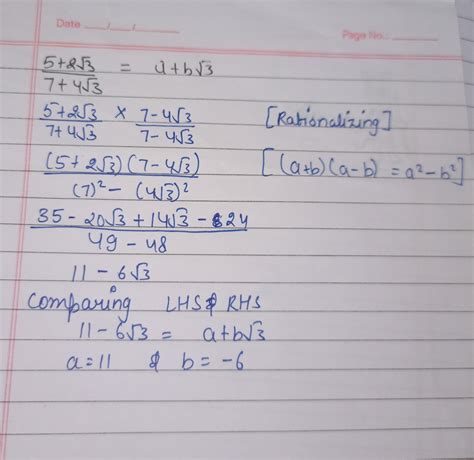 Date ___/___/___
Page No.: ______
(5+2√3)/(7+4√3) = a+b√3
(5+2√3)/(7+4√3) × (7-4√3)/(7-4√3) [Rationalizing]
(5+2√3)(7-4√3)/((7)²-(4√3)²) [(a+b)(a-b) = a²-b²]
(35-20√3+14√3-24)/(49-48)
11-6√3
Comparing LHS & RHS
11-6√3 = a+b√3
a=11 & b=-6